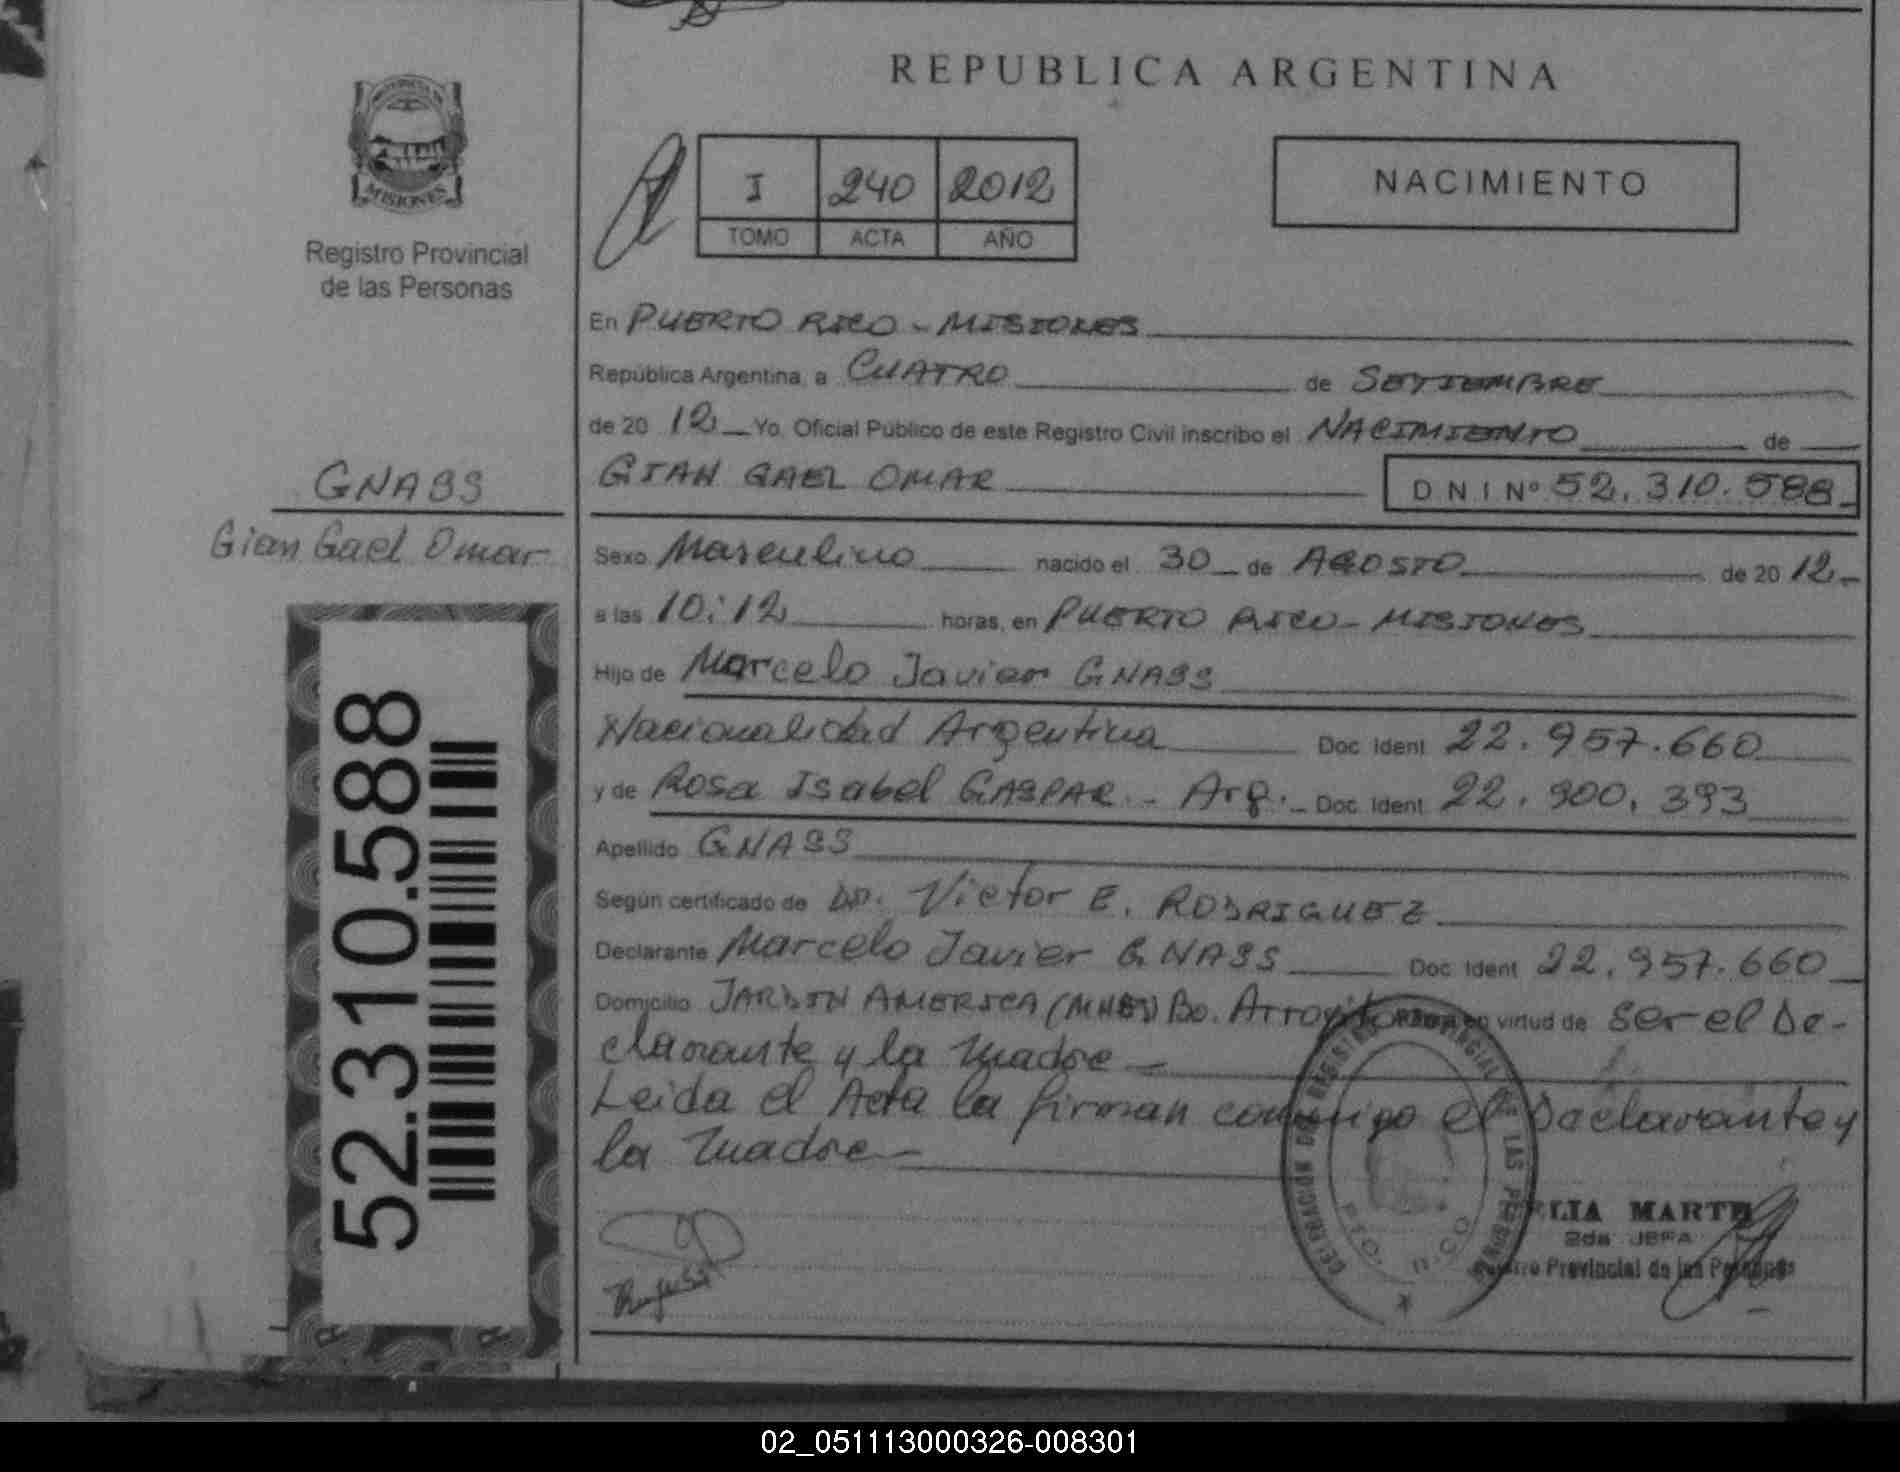 REPUBLICA ARGENTINA
MISIONES
Registro Provincial
de las Personas
I 240 2012
TOMO ACTA AÑO
NACIMIENTO
En PUERTO RICO - MISIONES
República Argentina, a CUATRO de SETIEMBRE
de 20 12 Yo, Oficial Público de este Registro Civil inscribo el NACIMIENTO de
GIAN GAEL OMAR DNI Nº 52.310.588
GNASS
Gian Gael Omar
Sexo Masculino nacido el 30 de AGOSTO de 20 12
a las 10:12 horas, en PUERTO RICO - MISIONES
Hijo de Marcelo Javier GNASS
Nacionalidad Argentina Doc. Ident. 22.957.660
y de Rosa Isabel GASPAR - Arg. Doc. Ident. 22.900.393
Apellido GNASS
Según certificado de DR. Victor E. RODRIGUEZ
Declarante Marcelo Javier GNASS Doc. Ident. 22.957.660
Domicilio JARDIN AMERICA (MNES) Bo. Arroyito virtud de ser el De-
clarante y la madre
Leida el Acta la firman conmigo el Declarante y
la madre
52.310.588
DELEGACIÓN DEL REGISTRO PROVINCIAL DE LAS PERSONAS
PTO. RICO
LIA MARTE
2da JEFA
Provincial de las Personas
02_051113000326-008301